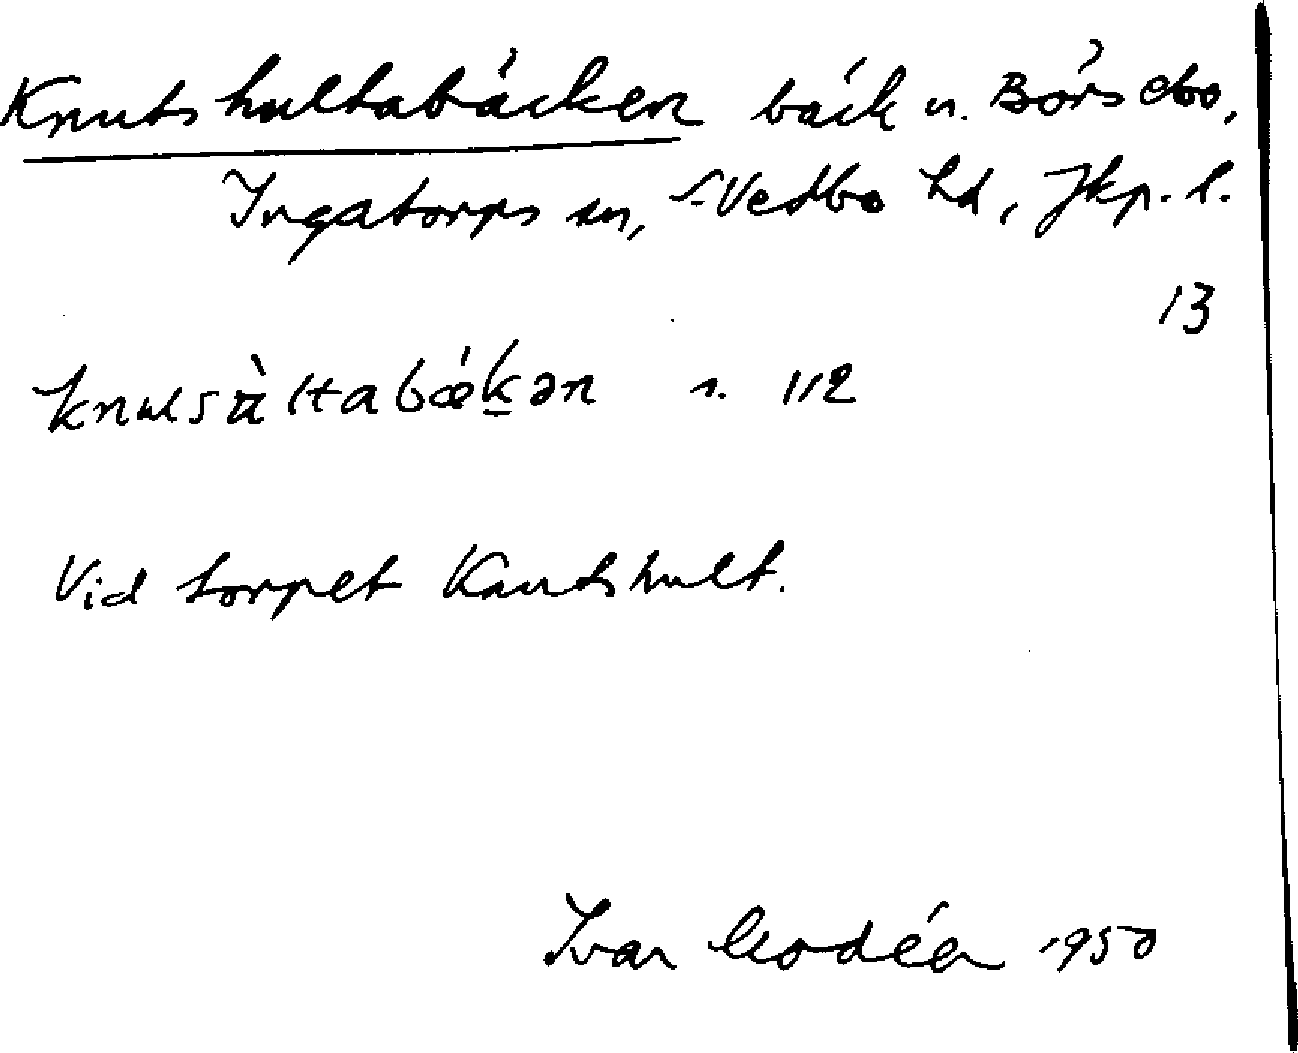 Knutshultabäcken bäck u. Börsebo,
Ingatorps sn, S. Vedbo hd, Jkp. l.
13
s. 112
Vid torpet Knutshult.
Ivar Modéer 1950